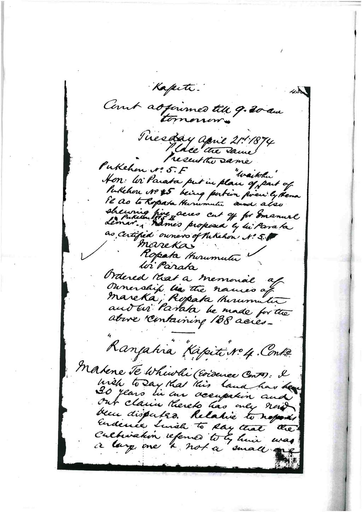 Kapiti.
Court adjourned till 9.30 am
tomorrow
Tuesday April 21st 1874
Place the same
Present the same
Pukehou No 5.F "Waitohi"
Hon Wi Parata put in plan of part of
Pukehou No 5 being portion
as to Ropata Hurumutu and also
shewing five acres cut off for Emanuel
"Pukehou 5F" names proposed by Wi Parata
as certified owners of Pukehou No 5F
Mareka
Ropata Hurumutu
Wi Parata
Ordered that a memorial of
ownership in the names of
Mareka, Ropata Hurumutu
and Wi Parata be made for the
above containing 188 acres.
"Rangatira" "Kapiti" No 4. Contd
Matene Te Whiwhi (Evidence Contd). I
wish to say that this land has been
30 years in our occupation and
our claim thereto has only now
been disputed Relative to
Evidence I wish to say that the
cultivation referred to by him was
a large one & not a small one